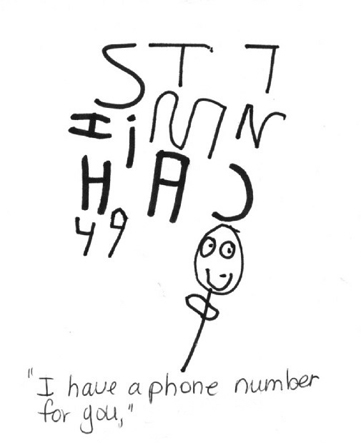 S T 7
I i M N
H A
49
"I have a phone number
for you,"